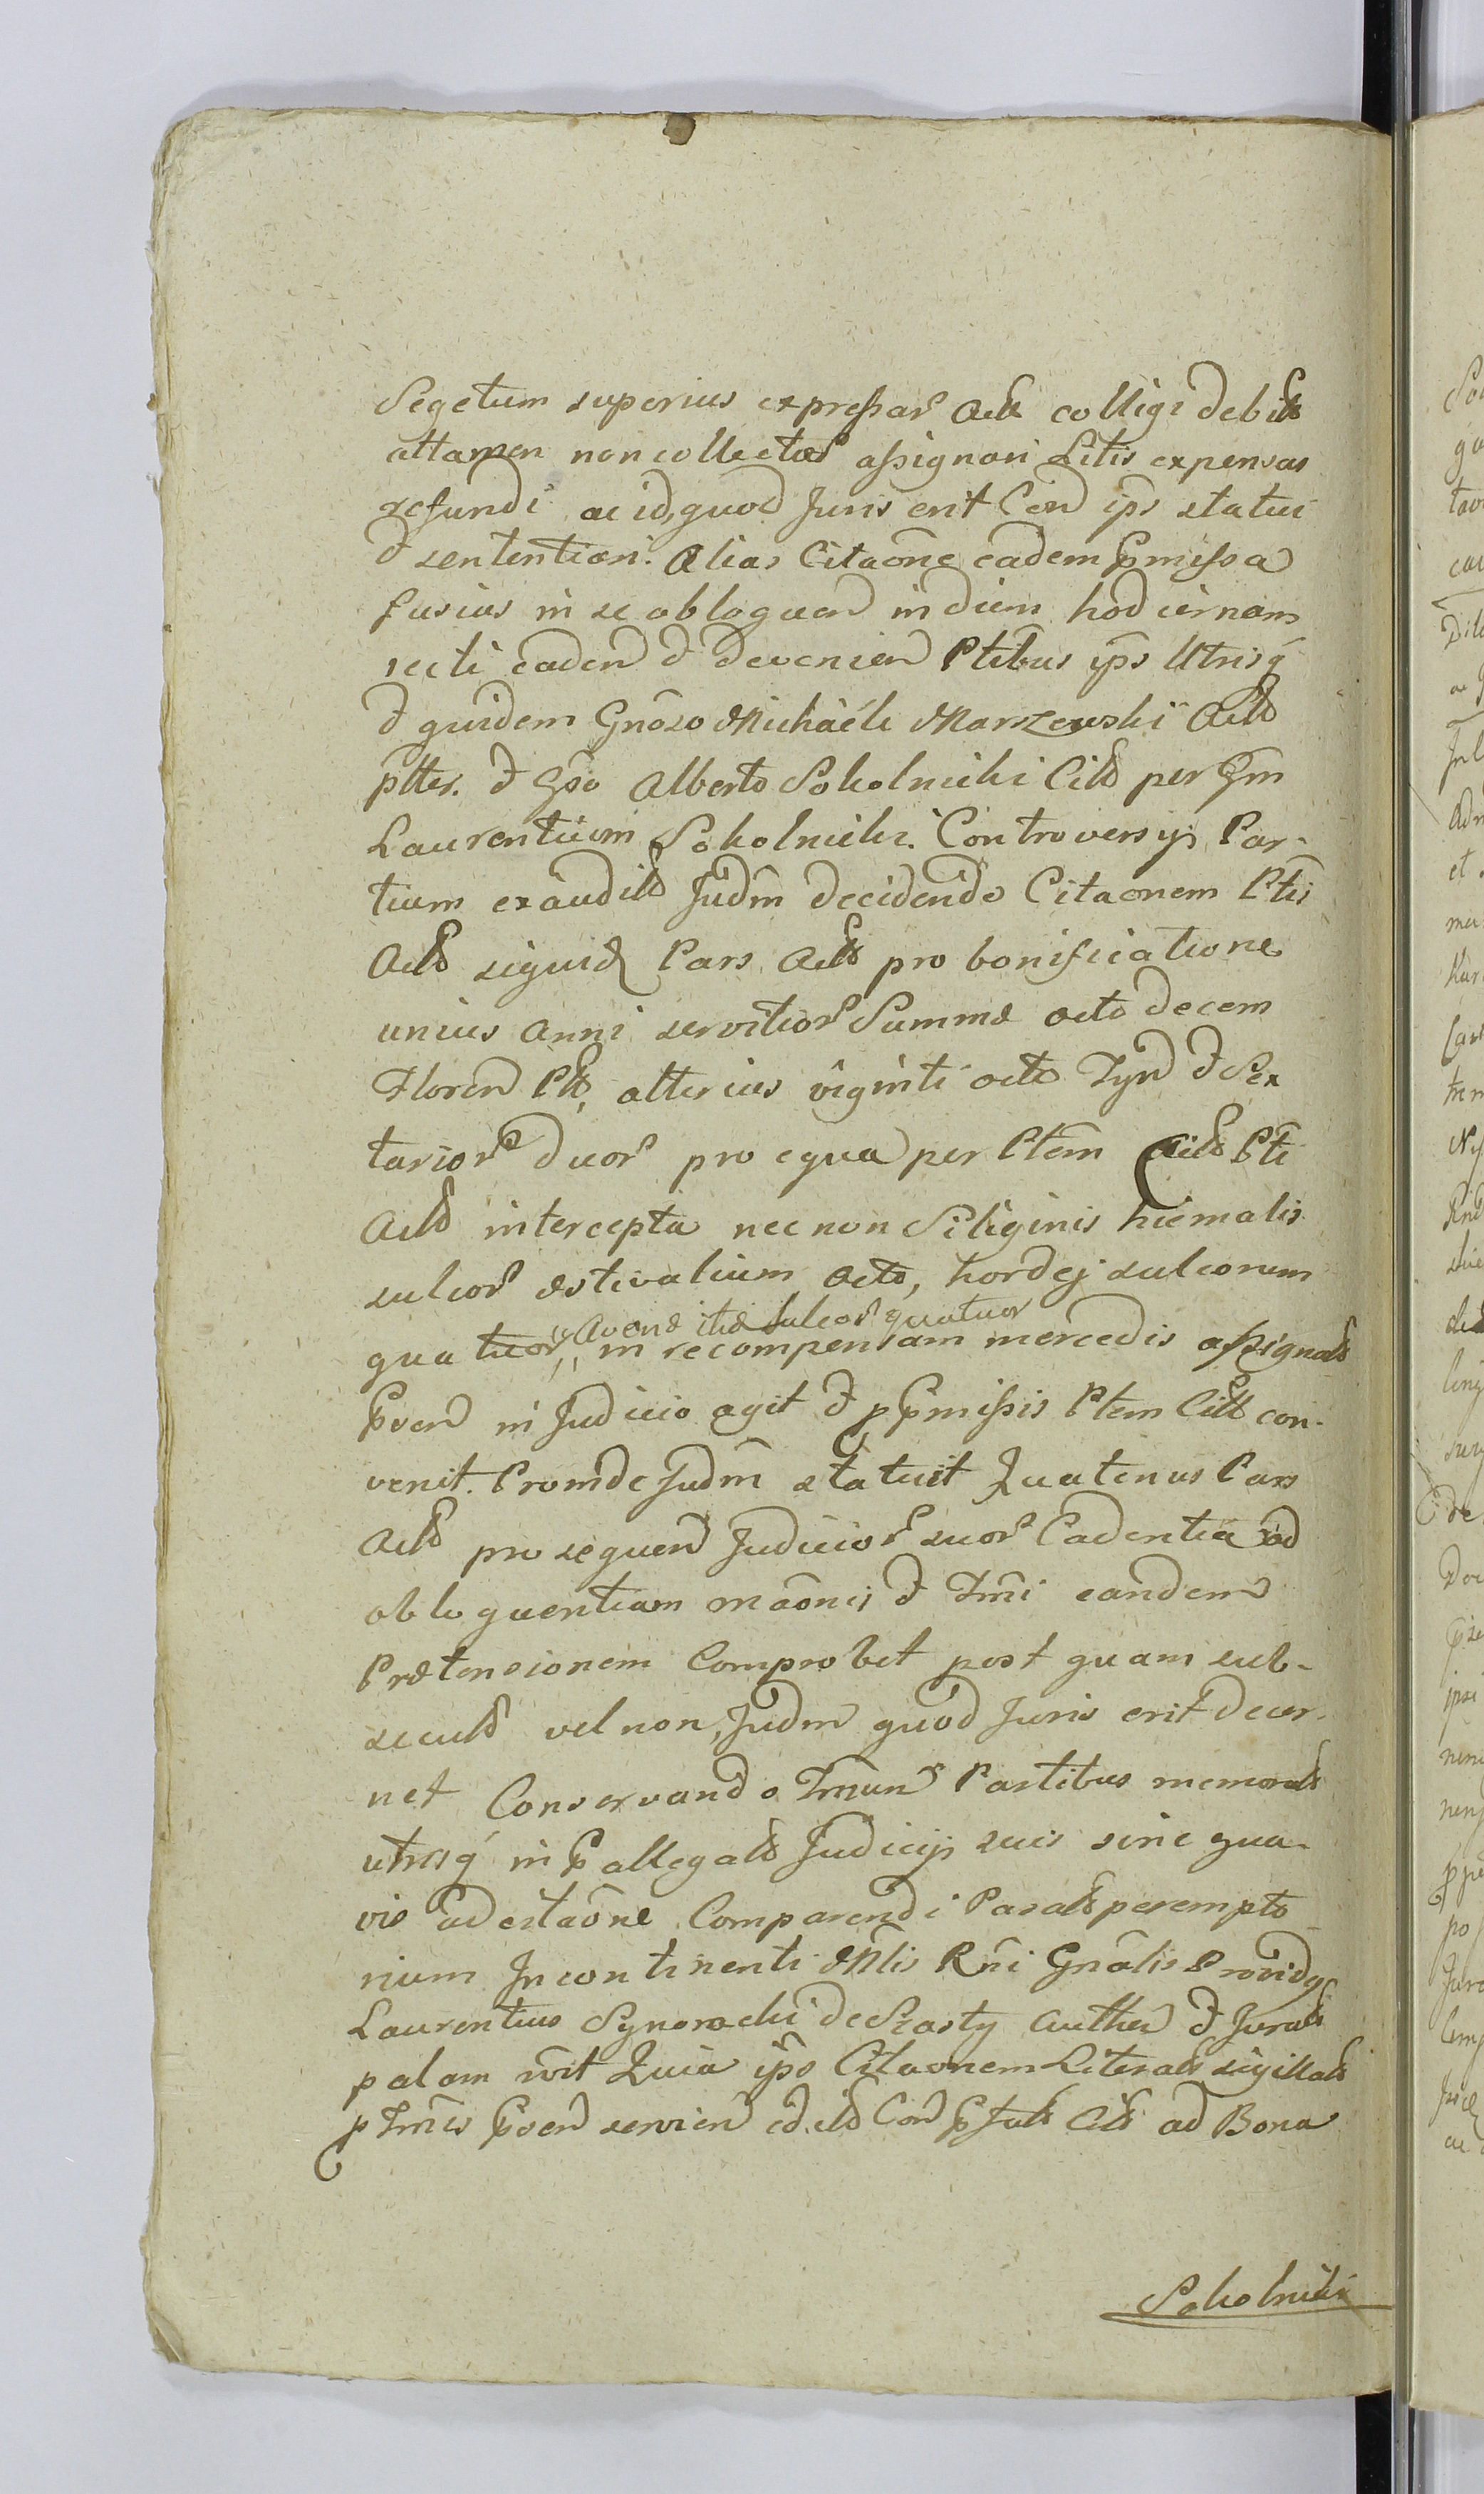 Segetum superius expressar Act colligi debit
attamen non collectar assignari Litis expensas
refundi ac id, quod Juris erit Cen ips statui
et sententiari. Alias Citaone eadem pmissa
fusius in se obloquen in diem hodiernam
recti caden et devenien Ptibus ips Utrisq
et quidem Gnoso Michaële Marszewski Act
ptter. et Gso Alberto Sokolnicki Cit per Gm
Laurentium Sokolnicki. Controversys Par-
tium exaudit Judm decidendo Citaonem Ptis
Act siquid Pars Act pro bonificatione
unius anni servitior Summæ octo decem
Floren Plt, alterius viginti octo Tyn et Sex
tarior duor pro equa per Ptem Cit Pti
Act intercepta nec non Siliginis hiemalis
sulcor æstivalium octo, hordej sulconum
Avenæ itid sulcor quatuor
quatuor in recompensam mercedis assignat
psen in Judicio agit et p pmissis Ptem Cit con-
venit. Proinde Judm statuit Quatenus Pars
Act pro sequen Judicior suor Cadentia ad
obloquentiam maonis et Tmi eandem
Prætensionem Comprobet post quam sub-
secut vel non, Judm quod Juris erit decer-
net Conservando Tmun Partibus memorat
utrisq in p allegat Judicijs suis sine qua-
vis adcitaone Comparendi Parat perempto
rium Incontinenti Mlis Rni Gnalis Providq
Laurentius Synoracki de Szasty authen et Jurat
palam rcit Quia ips Citaonem Literat sigillat
p Tmis psen servien ed. Cit ad Bona
Sokolnicki